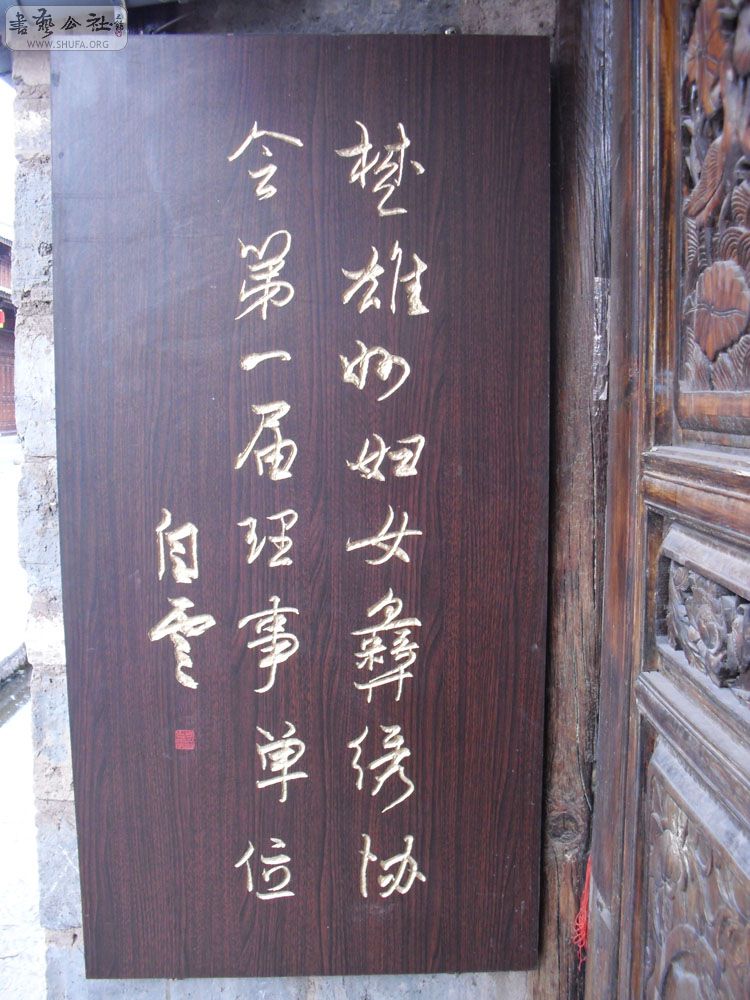 楚雄州妇女彝绣协
会第一届理事单位
白云
書藝公社
WWW.SHUFA.ORG